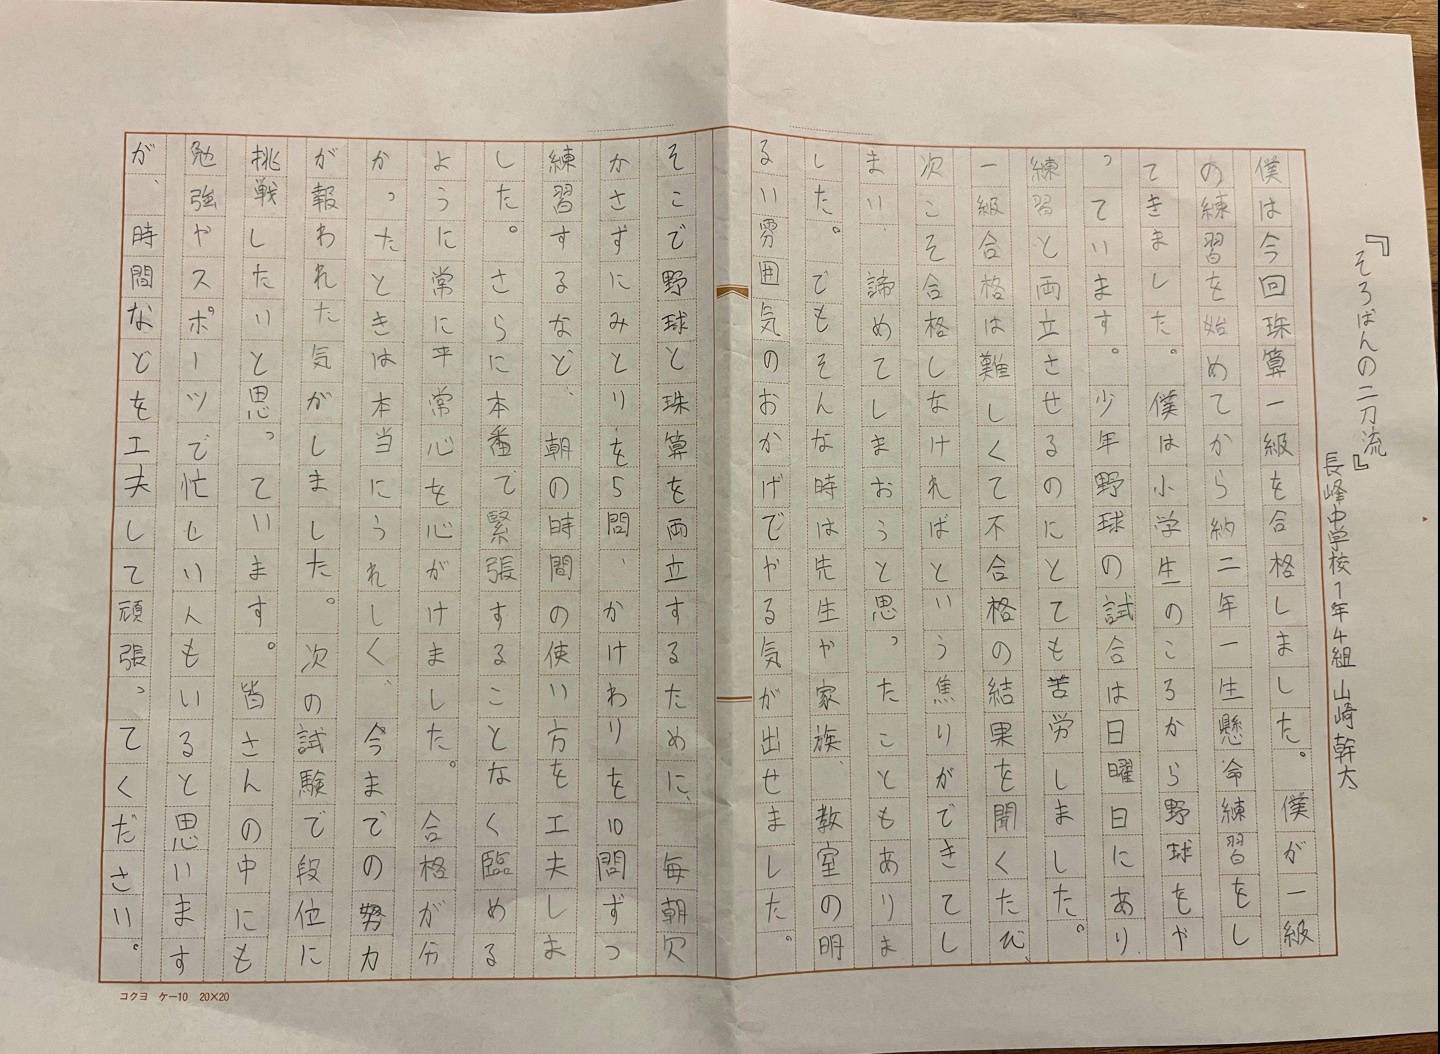 『そろばんの二刀流』
長峰中学校1年4組 山崎幹大
僕は今回珠算一級を合格しました。僕が一級
の練習を始めてから約二年一生懸命練習をし
てきました。僕は小学生のころから野球をや
っています。少年野球の試合は日曜日にあり、
練習と両立させるのにとても苦労しました。
一級合格は難しくて不合格の結果を聞くたび、
次こそ合格しなければという焦りができてし
まい、諦めてしまおうと思ったこともありま
した。でもそんな時は先生や家族、教室の明
るい雰囲気のおかげでやる気が出せました。
そこで野球と珠算を両立するために、毎朝欠
かさずにみとりを5問、かけわりを10問ずつ
練習するなど、朝の時間の使い方を工夫しま
した。さらに本番で緊張することなく臨める
ように常に平常心を心がけました。合格が分
かったときは本当にうれしく、今までの努力
が報われた気がしました。次の試験で段位に
挑戦したいと思っています。皆さんの中にも
勉強やスポーツで忙しい人もいると思います
が、時間などを工夫して頑張ってください。
コクヨ ケー10 20×20